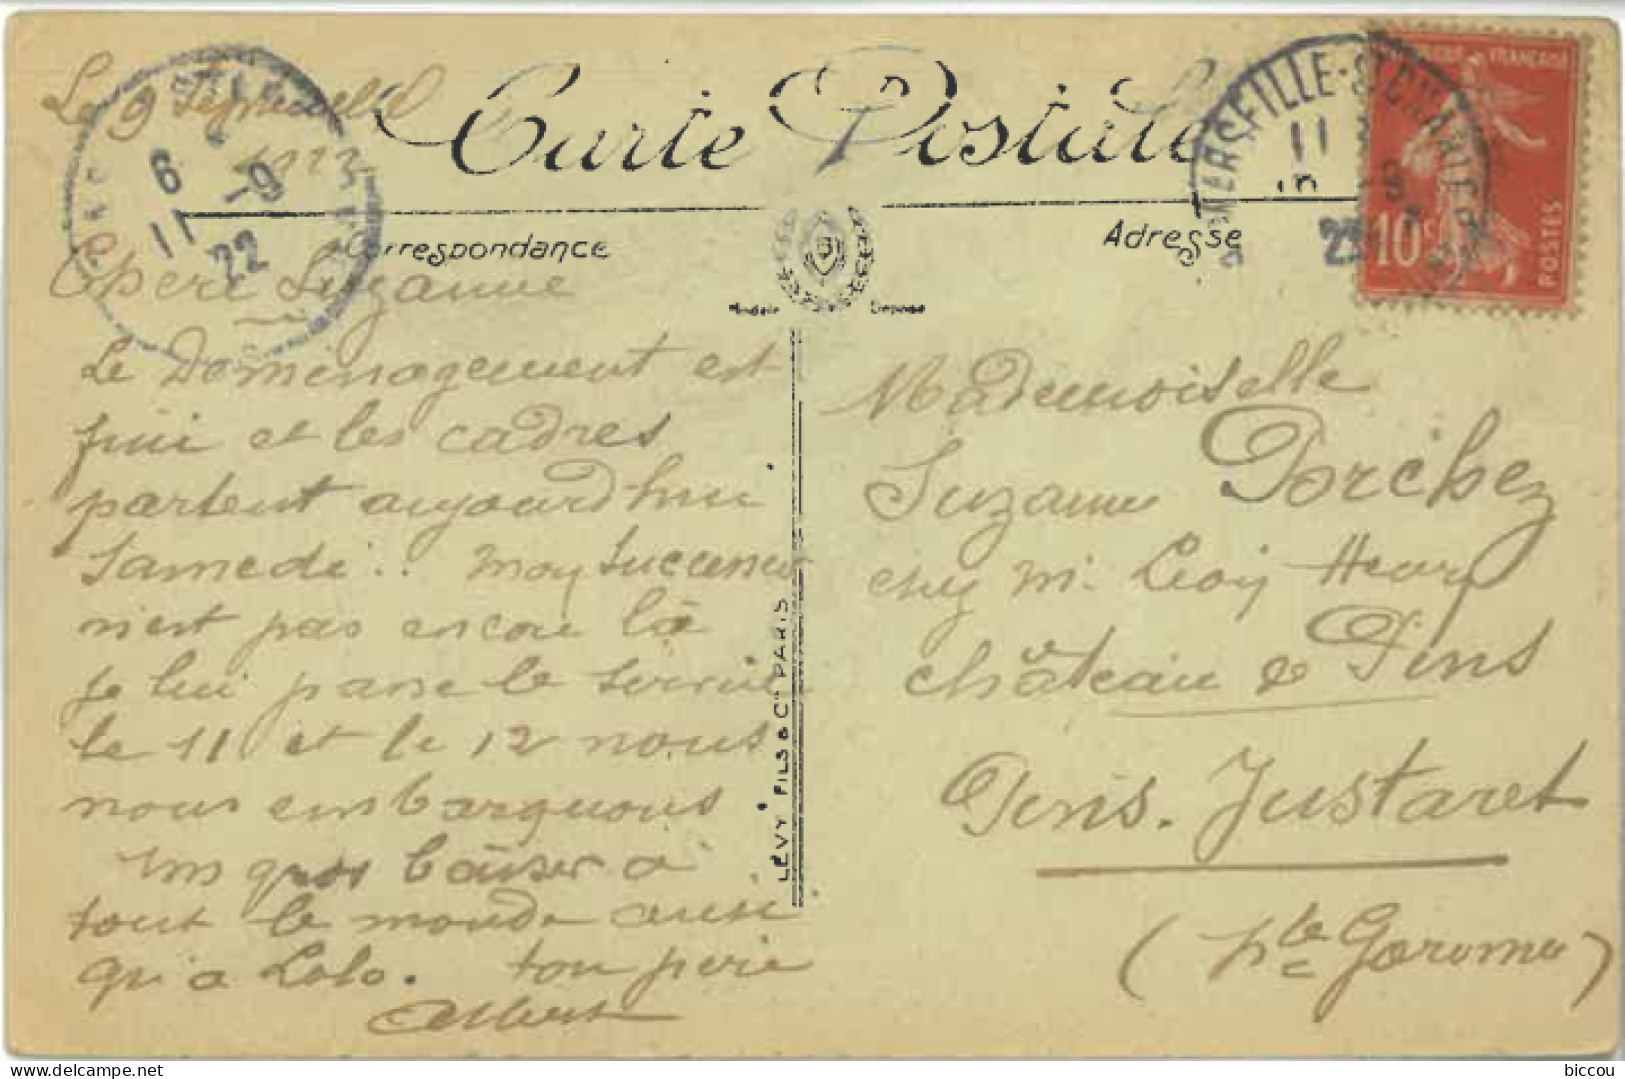 Carte Postale
Le 9 Septembre
1922
Correspondance
Adresse
Modèle Déposé
MARSEILLE-ST CHARLES
11
10 -9
22
6
11 -9
22
FRANÇAISE
10c
POSTES
Chere Suzanne
Le Demenagement est
fini et les cadres
partent aujourd'hui
Samedi.. mon successeur
n'est pas encore là
je lui passe le service
le 11 et le 12 nous
nous embarquons
un gros baiser a
tout le monde ainsi
qu'a Lolo. ton pere
Albert
LÉVY FILS & Cie PARIS
Mademoiselle
Suzanne Porchez
chez Mr Léon
château de Pins
Pins-Justaret
(Hte Garonne)
biccou